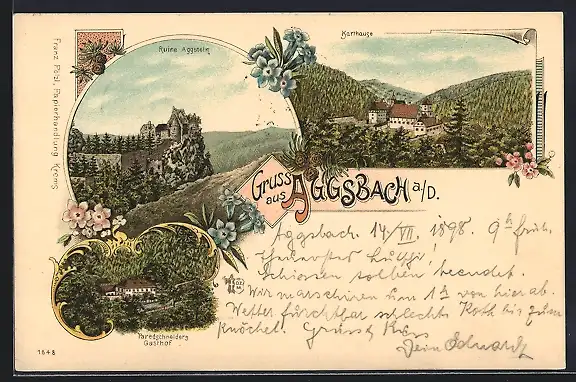 Ruine Aggstein
Karthause
Franz Pölzl, Papierhandlung Krems
Gruss
aus
AGGSBACH a/D.
Aggsbach 14/VII. 1898. 9h früh.
Schiessen soeben beendet.
Wir marschiren um 1h von hier ab.
Wetter furchtbar schlecht Koth bis zum
Knöchel. Gruss & Kuss
Dein Eduard
Paradschneiders
Gasthof
1648